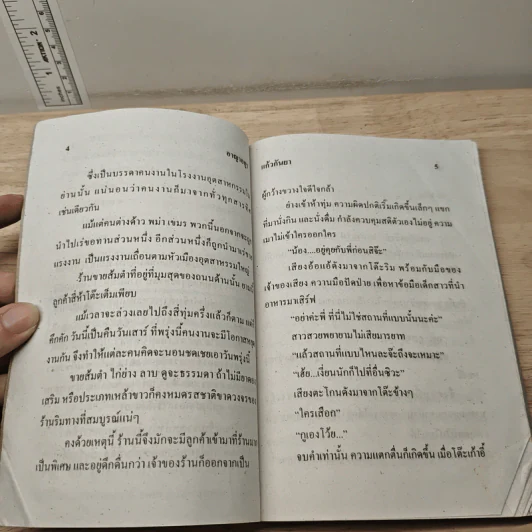 4
อาญาเถื่อน
ซึ่งเป็นบรรดาคนงานในโรงงานอุตสาหกรรม
ย่านนั้น แน่นอนว่าคนงานก็มาจากทั่วทุกสาร
เช่นเดียวกัน
แม้แต่คนต่างด้าว พม่า เขมร พวกนี้นอกจาก
นำไปเร่ขอทานส่วนหนึ่ง อีกส่วนหนึ่งก็ถูกนำมา
แรงงาน เป็นแรงงานเถื่อนตามหัวเมืองอุตสาหกรรมใหญ่
ร้านขายส้มตำที่อยู่ที่มุมสุดของถนนด้านนั้น
ลูกค้าสี่ห้าโต๊ะเต็มเพียบ
แม้เวลาจะล่วงเลยไปถึงสี่ทุ่มครึ่งแล้วก็ตาม
คึกคัก วันนี้เป็นคืนวันเสาร์ ที่พรุ่งนี้คนงานจะมีโอกาส
งานกัน จึงทำให้แต่ละคนคิดจะนอนชดเชยเอาวันพรุ่งนี้
ขายส้มตำ ไก่ย่าง ลาบ ดูจะธรรมดา ถ้าไม่มี
เสริม หรือประเภทเหล้าขาวก็คงหมดรสชาติขาดวงจรของ
ร้านริมทางที่สมบูรณ์แน่ๆ
คงด้วยเหตุนี้ ร้านนี้จึงมักจะมีลูกค้าเข้ามาที่ร้าน
เป็นพิเศษ และอยู่ดึกดื่นกว่า เจ้าของร้านก็ออกจากเป็น
แก้วกันยา
5
ผู้กว้างขวางใจดีใจกล้า
ย่างเข้าห้าทุ่ม ความผิดปกติเริ่มเกิดขึ้นเล็กๆ แขก
ที่มานั่งกิน และนั่งดื่ม กำลังควบคุมสติตัวเองไม่อยู่ ความ
เมาไม่เข้าใครออกใคร
“น้อง....อยู่คุยกับพี่ก่อนสิจ๊ะ”
เสียงอ้อแอ้ดังมาจากโต๊ะริม พร้อมกับมือของ
เจ้าของเสียง ความมือปัดป่าย เพื่อหาข้อมือเด็กสาวที่นำ
อาหารมาเสิร์ฟ
“อย่าค่ะพี่ ที่นี่ไม่ใช่สถานที่แบบนั้นนะคะ”
สาวสวยพยายามไม่เสียมารยาท
“แล้วสถานที่แบบไหนละจ๊ะถึงจะเหมาะ”
“เฮ้ย...เงี่ยนนักก็ไปที่อื่นซิวะ”
เสียงตะโกนดังมาจากโต๊ะข้างๆ
“ใครเสือก”
“กูเองโว้ย...”
จบคำเท่านั้น ความแตกตื่นก็เกิดขึ้น เมื่อโต๊ะเก้าอี้